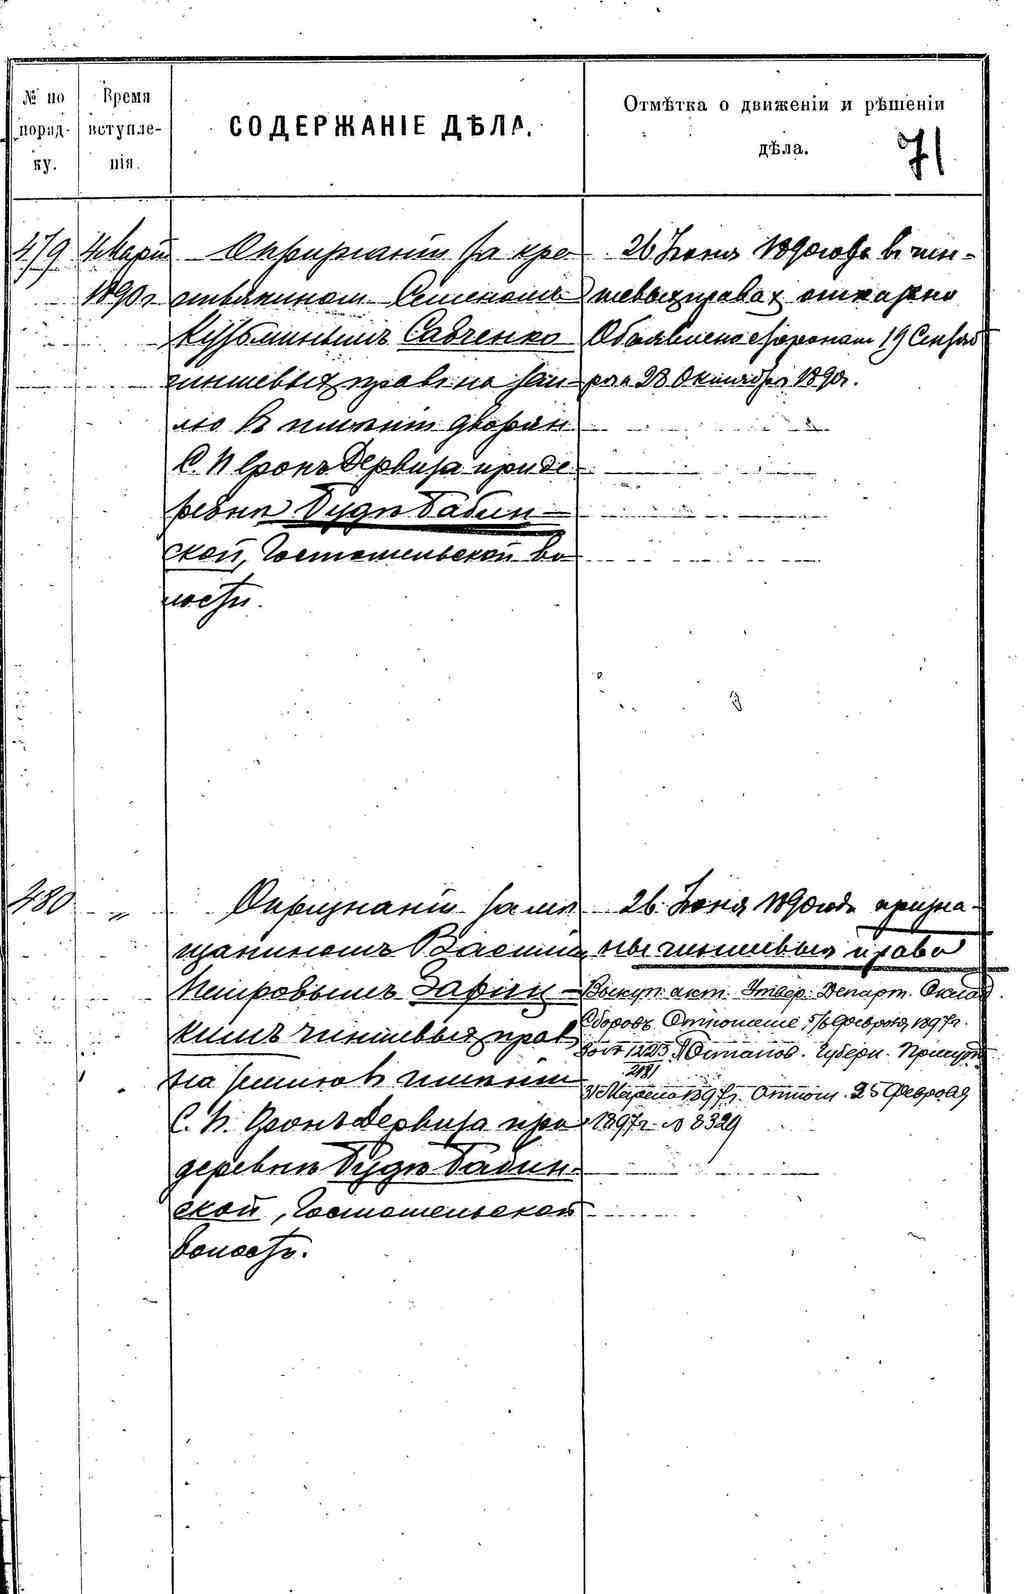 № по порядку.
Время вступленія.
СОДЕРЖАНІЕ ДѢЛА.
Отмѣтка о движеніи и рѣшеніи
дѣла.
71
479
4 Марта
1890 г
О признаніи за кре-
стьяниномъ Семеномъ
Кузьминымъ Савченко
чиншевыхъ правъ на зем-
лю въ имѣніи дворян
С. П. Фонъ Дервиза при де
ревнѣ Будѣ Бабин-
ской, Гостомельской во
лости.
26 Іюня 1890 года в чин-
шевыхъ правах отказано
Объявлено сторонам 19 Сентяб
ря и 28 Октября 1890 г.
480
„
О признаніи за мѣ
щаниномъ Василі
Петровымъ
кимъ чиншевых прав
на землю въ имѣніи
С. П. Фонъ Дервиза при
деревнѣ Будѣ Бабин-
ской, Гостомельской
волости.
26 Іюня 1890 года призна-
ны чиншевыя права
Выкуп. акт. Утвер. Департ. Оклад.
Сборовъ. Отношение, 5/6 Февраля 1897 г.
за № 1223 Губерн. Присут.
2181
Марта 1897 г. Отнош. 25 Февраля
1897 г. № 8329